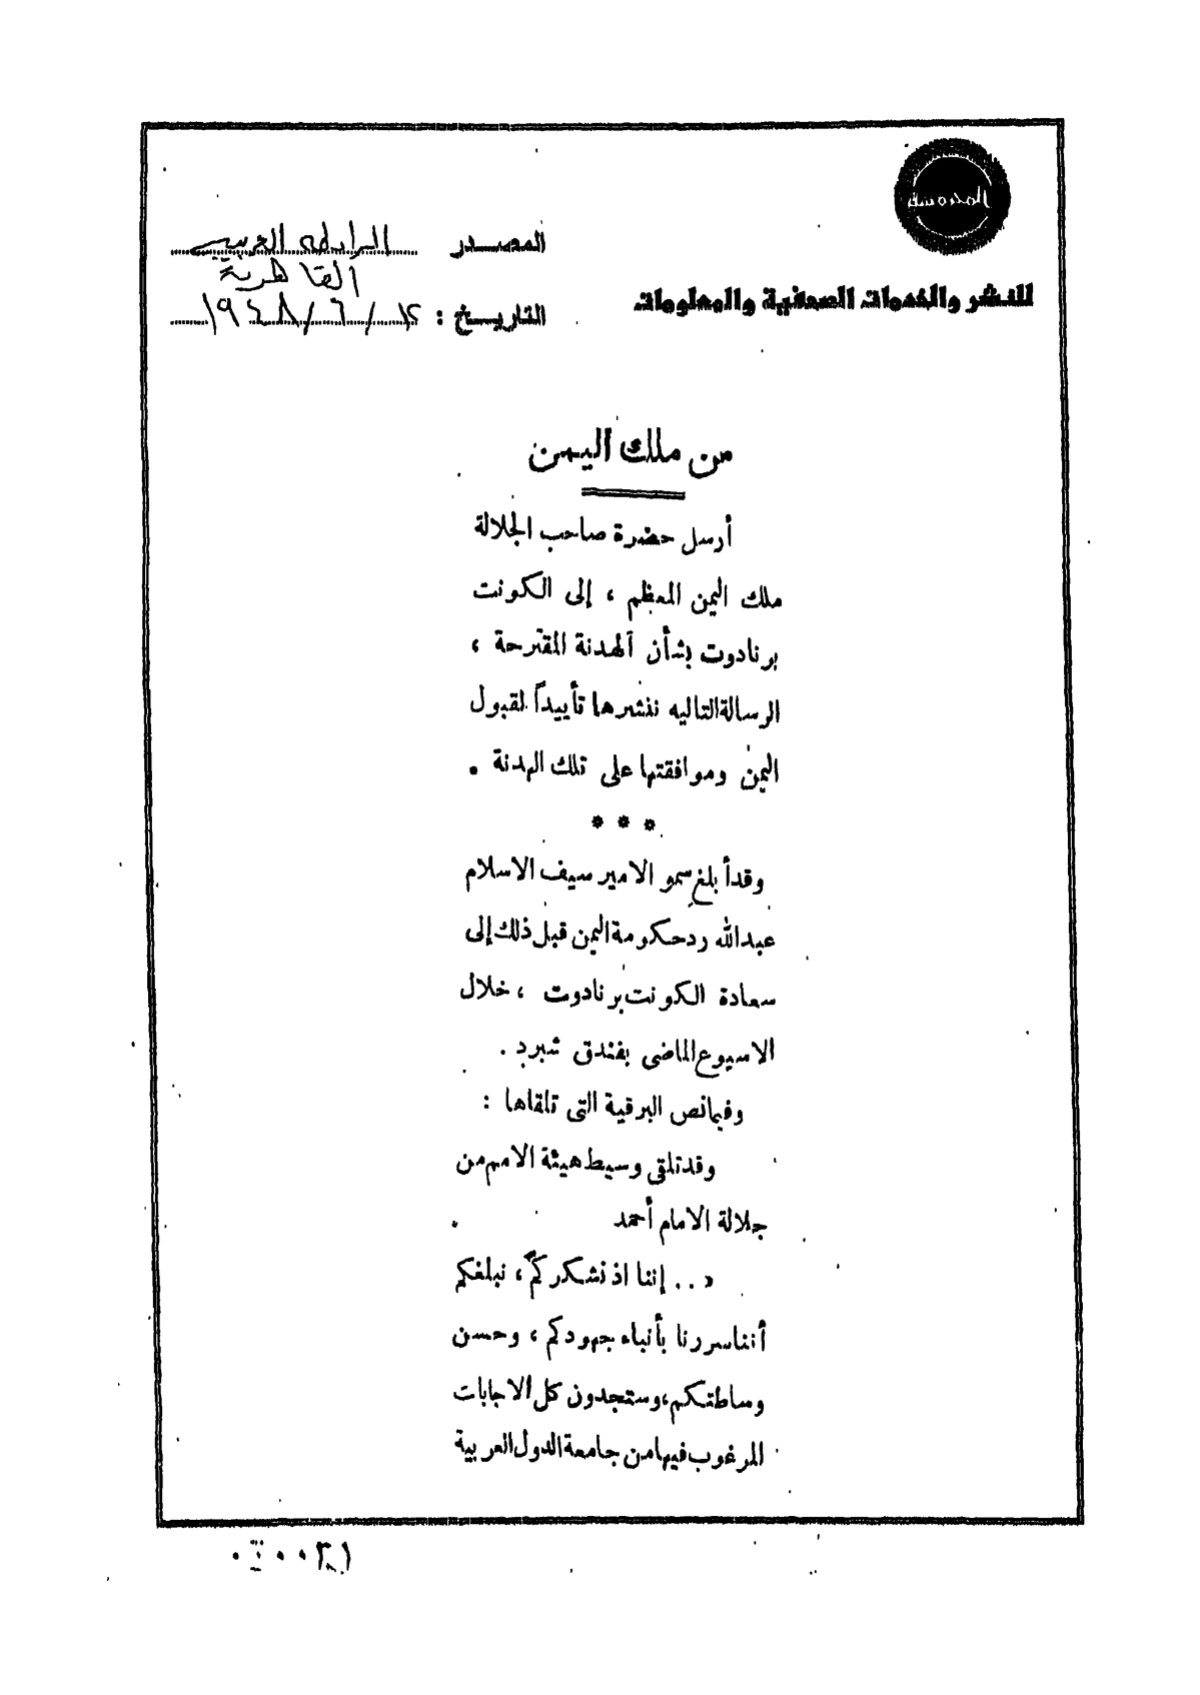 المصدر الرابطه العربيه
القاهرية
للنشر والخدمات الصحفية والمعلومات
التاريخ : ١٩٤٨/٦/
من ملك اليمن
أرسل حضرة صاحب الجلالة
ملك اليمن المعظم ، إلى الكونت
برنادوت بشأن الهدنة المقترحة ،
الرسالة التاليه ننشرها تأييداً لقبول
اليمن وموافقتها على تلك الهدنة .
* * *
وقد أبلغ سمو الامير سيف الاسلام
عبدالله رد حكومة اليمن قبل ذلك إلى
سعادة الكونت برنادوت ، خلال
الاسبوع الماضى بفندق شبرد .
وفيما نص البرقية التى تلقاها :
وقد تلقى وسيط هيئة الامم من
جلالة الامام أحمد .
« . . إننا اذ نشكركم ، نبلغكم
أننا سررنا بأنباء جهودكم ، وحسن
وساطتكم ، وستجدون كل الاجابات
المرغوب فيها من جامعة الدول العربية